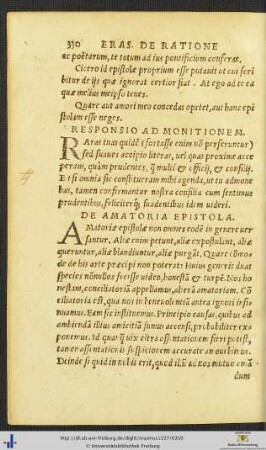 330 ERAS. DE RATIONE
ac poëtarum, te totum ad ius pontificium conferas.
Cicero id epistolæ proprium esse putauit ut cui scri
bitur de ijs quæ ignorat certior fiat. At ego ad te ea
quæ melius meipso tenes.
Quare aut amori meo concedas oportet, aut hanc epi
stolam esse neges.
RESPONSIO AD MONITIONEM.
RAras tuas quidē (fortasse enim nō perferuntur)
sed suaues accipio literas, uel quas proxime acce
peram, quàm prudenteis, q̃ multi & officij, & consilij.
Et si omnia sic constitueram mihi agenda, ut tu admone
bas, tamen confirmantur nostra consilia cum sentimus
prudentibus, feliciterq́; suadentibus idem uideri.
DE AMATORIA EPISTOLA.
AMatoriæ epistolæ non omnes eodē in genere uer
santur. Aliæ enim petunt, aliæ expostulant, aliæ
queruntur, aliæ blandiuntur, aliæ purgāt. Quare cōmo
de de his arte præcipi non poterat: Huius duas
species nonnullos fecisse uideo, honestā & turpē. Nos ho
nestam, conciliatoriā appellamus, alterā amatoriam. Cō
ciliatoria est, qua nos in beneuolentiā antea ignoti insi
nuamus. Eam sic instituemus. Principio causas, quibus ad
ambiendā illius amicitiā sumus accensi, probabiliter ex
ponemus. Id quatenus citra assentationem fieri potest,
tamen assentationis suspicionem accurate amouebimus.
Deinde si quid in nobis erit, quod illū ad nos mutuo amā
dum
http://dl.ub.uni-freiburg.de/diglit/erasmus1527/0350
© Universitätsbibliothek Freiburg